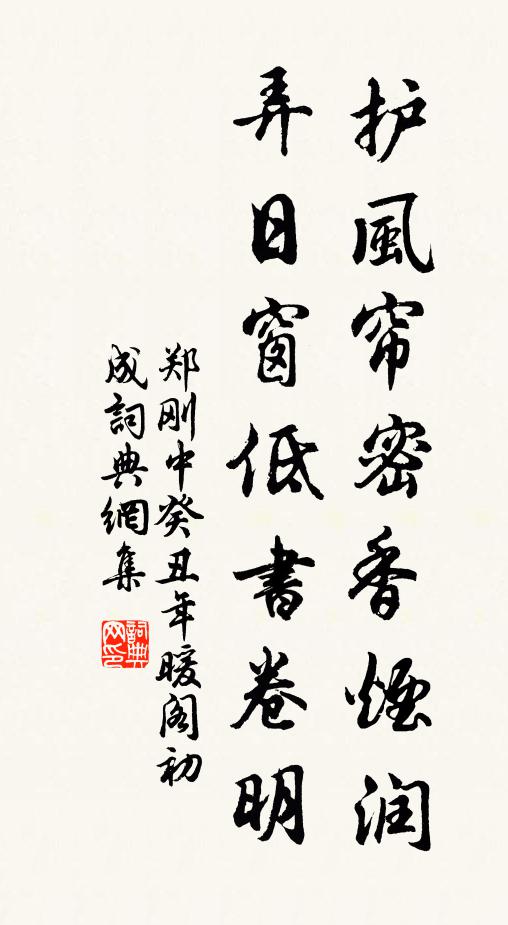 护風帘密香煙润
弄日窗低書卷明
郑刚中癸丑年暖阁初
成詞典網集
詞典
网印